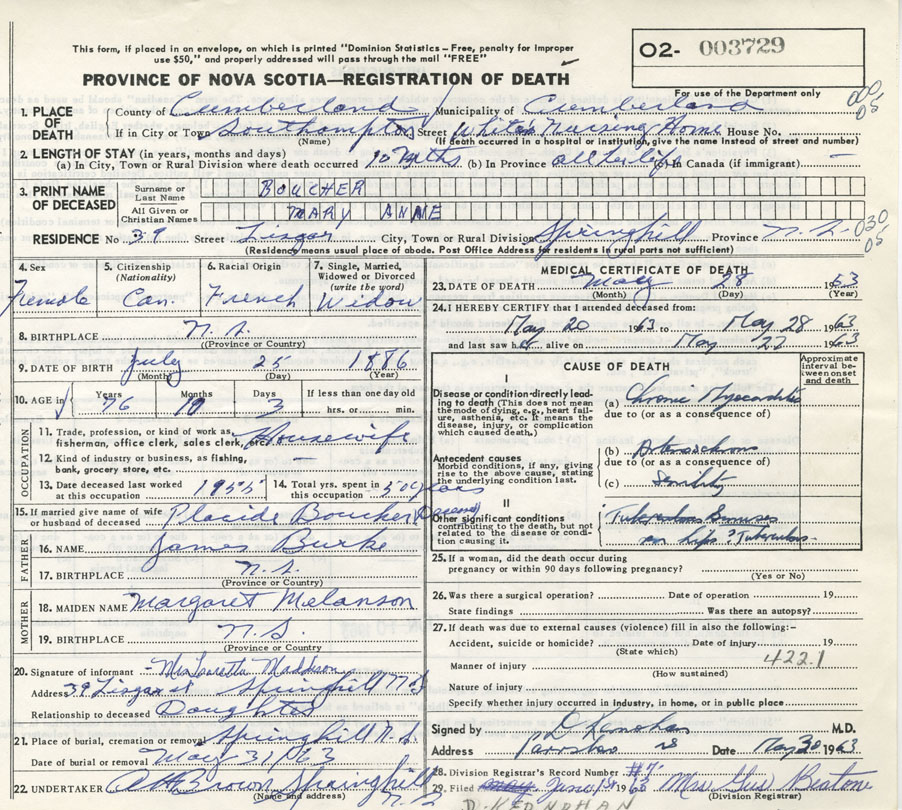 This form, if placed in an envelope, on which is printed "Dominion Statistics — Free, penalty for improper
use $50," and properly addressed will pass through the mail "FREE"
O2- 003729
PROVINCE OF NOVA SCOTIA—REGISTRATION OF DEATH
For use of the Department only
1. PLACE OF DEATH County of Cumberland Municipality of Cumberland
If in City or Town Southampton Street Whites Nursing Home House No.
(Name) (If death occurred in a hospital or institution, give the name instead of street and number)
2. LENGTH OF STAY (in years, months and days)
(a) In City, Town or Rural Division where death occurred 10 Mths (b) In Province all her life (c) In Canada (if immigrant) —
3. PRINT NAME OF DECEASED Surname or Last Name BOUCHER
All Given or Christian Names MARY ANNE
RESIDENCE No 39 Street Lisgar City, Town or Rural Division Springhill Province N.S.
(Residence means usual place of abode. Post Office Address for residents in rural parts not sufficient)
030
05
4. Sex Female
5. Citizenship (Nationality) Can.
6. Racial Origin French
7. Single, Married, Widowed or Divorced (write the word) Widow
8. BIRTHPLACE N.S.
(Province or Country)
9. DATE OF BIRTH July 25 1886
(Month) (Day) (Year)
10. AGE in Years 76 Months 10 Days 3 If less than one day old hrs. or min.
OCCUPATION
11. Trade, profession, or kind of work as fisherman, office clerk, sales clerk, etc. Housewife
12. Kind of industry or business, as fishing, bank, grocery store, etc. —
13. Date deceased last worked at this occupation 1955
14. Total yrs. spent in this occupation 50 years
15. If married give name of wife or husband of deceased Placide Boucher (Deceased)
FATHER
16. NAME James Burke
17. BIRTHPLACE N.S.
(Province or Country)
MOTHER
18. MAIDEN NAME Margaret Melanson
19. BIRTHPLACE N.S.
(Province or Country)
20. Signature of informant - Mrs Maddison
Address 39 Lisgar st Springhill N.S
Relationship to deceased Daughter
21. Place of burial, cremation or removal Springhill N.S.
Date of burial or removal May 31/63
22. UNDERTAKER Brown Springhill N.S.
(Name and address)
MEDICAL CERTIFICATE OF DEATH
23. DATE OF DEATH May 28 1963
(Month) (Day) (Year)
24. I HEREBY CERTIFY that I attended deceased from:
May 20 1963 to May 28 1963
and last saw h alive on May 27 1963
CAUSE OF DEATH
Approximate interval between onset and death
I
Disease or condition directly leading to death (This does not mean the mode of dying, e.g., heart failure, asthenia, etc. It means the disease, injury, or complication which caused death.)
(a) Chronic Myocarditis
due to (or as a consequence of)
Antecedent causes
Morbid conditions, if any, giving rise to the above cause, stating the underlying condition last.
(b)
due to (or as a consequence of)
(c) Senility
II
Other significant conditions contributing to the death, but not related to the disease or condition causing it.
Tuberculous Sinuses
on hips ?Tuberculosis
25. If a woman, did the death occur during pregnancy or within 90 days following pregnancy?
(Yes or No)
26. Was there a surgical operation? Date of operation 19
State findings Was there an autopsy?
27. If death was due to external causes (violence) fill in also the following:-
Accident, suicide or homicide? Date of injury 19
(State which)
422.1
Manner of injury
(How sustained)
Nature of injury
Specify whether injury occurred in industry, in home, or in public place
Signed by D Kernohan M.D.
Address Parrsboro NS Date May 30 1963
28. Division Registrar's Record Number #
29. Filed June 1st 1963 Mrs. Gus Beaton
(Division Registrar)
D. KERNOHAN